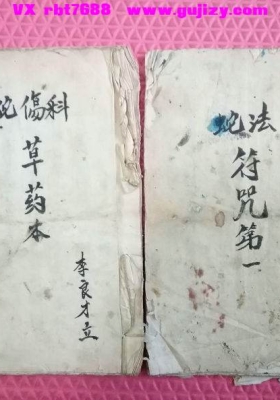 VX rbt7688 www.gujizy.com
蛇傷科
草药本
李良才立
蛇法
符咒第一